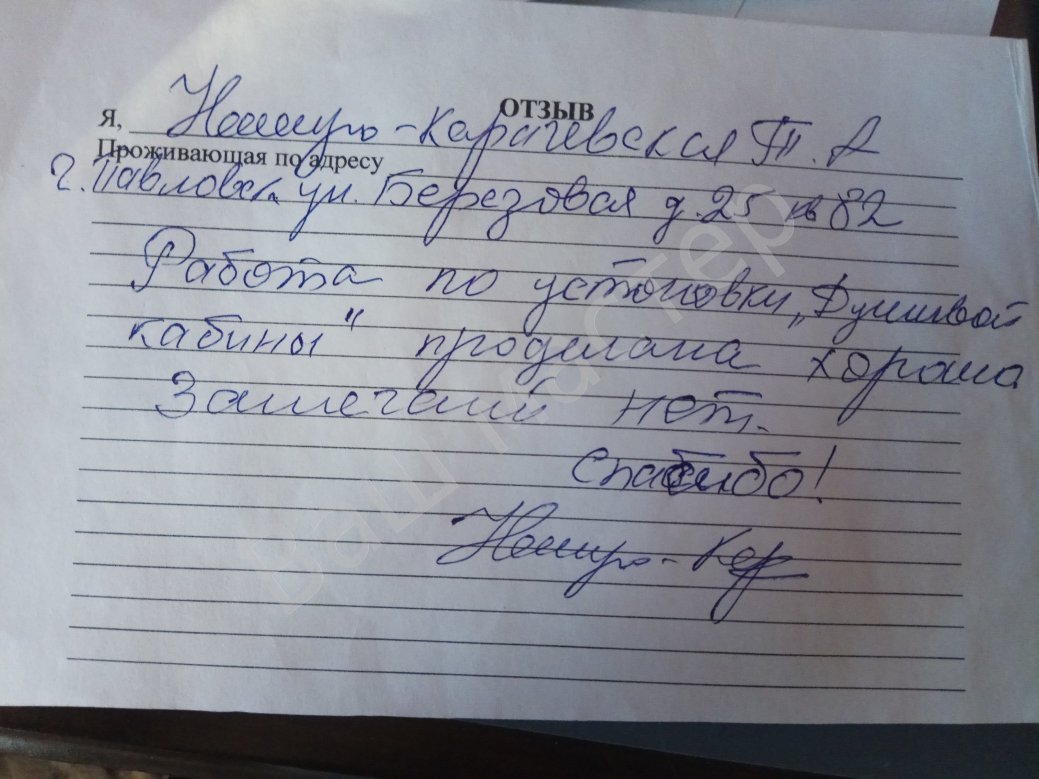 ОТЗЫВ
Я, -Карачевская Т. А
Проживающая по адресу
г. Павловск ул. Березовая д. 25 кв 82
Работа по установки „Душевой
кабины" проделана хораша
Замечаний нет.
спасибо!
Ваш мастер